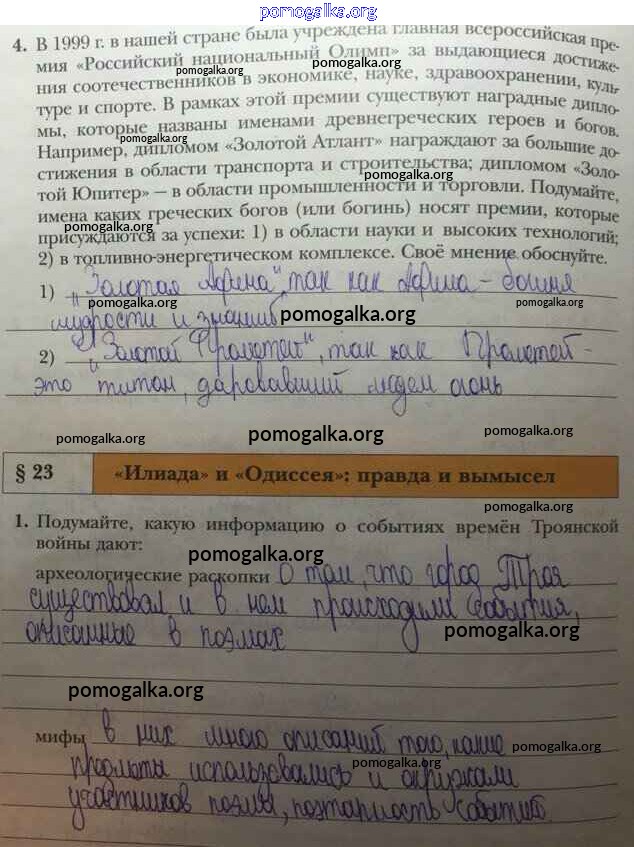 pomogalka.org
4. В 1999 г. в нашей стране была учреждена главная всероссийская пре-
мия «Российский национальный Олимп» за выдающиеся достиже-
pomogalka.org pomogalka.org
ния соотечественников в экономике, науке, здравоохранении, куль-
туре и спорте. В рамках этой премии существуют наградные дипло-
мы, которые названы именами древнегреческих героев и богов.
pomogalka.org
Например, дипломом «Золотой Атлант» награждают за большие до-
стижения в области транспорта и строительства; дипломом «Золо-
pomogalka.org
той Юпитер» — в области промышленности и торговли. Подумайте,
имена каких греческих богов (или богинь) носят премии, которые
присуждаются за успехи: 1) в области науки и высоких технологий;
pomogalka.org
2) в топливно-энергетическом комплексе. Своё мнение обоснуйте.
1) „Золотая Афина", так как Афина - богиня
pomogalka.org pomogalka.org
мудрости и знаний
pomogalka.org
2) „Золотой Прометей", так как Прометей -
это титан, даровавший людям огонь
pomogalka.org
pomogalka.org pomogalka.org pomogalka.org
§ 23 «Илиада» и «Одиссея»: правда и вымысел
pomogalka.org
1. Подумайте, какую информацию о событиях времён Троянской
войны дают:
pomogalka.org
археологические раскопки О том, что город Троя
существовал и в нем происходили события,
описанные в поэмах
pomogalka.org
pomogalka.org
мифы в них много описаний того, какие
pomogalka.org
предметы использовались и окружали
участников поэмы, поэтапность событий
pomogalka.org
pomogalka.org